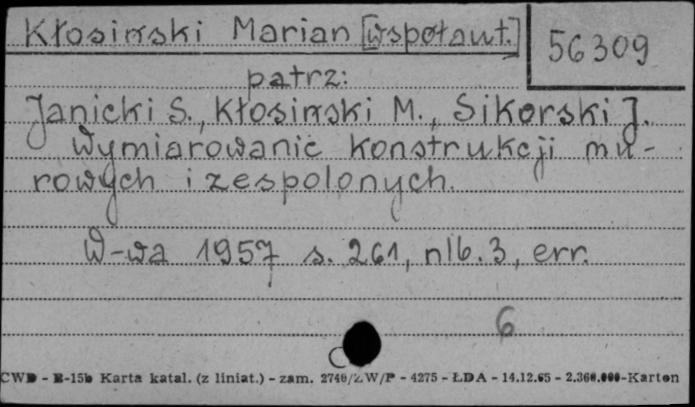 Kłosiński Marian [współaut.]
56309
patrz:
Janicki S., Kłosiński M., Sikorski J.
Wymiarowanie konstrukcji mu-
rowych i zespolonych.
W-wa 1957 s. 261, nlb. 3, err.
6
CWD - E-15b Karta katal. (z liniat.) - zam. 2740/ZW/P - 4275 - ŁDA - 14.12.65 - 2.360.000-Karton